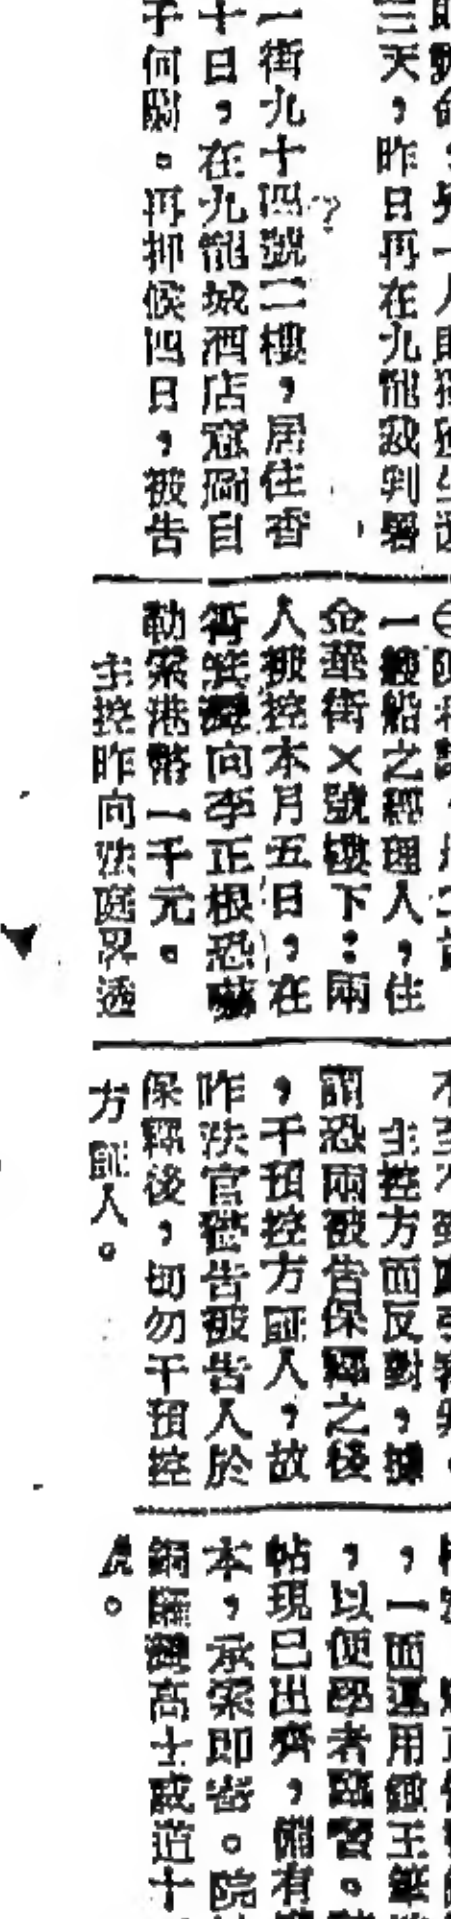 三天，昨日再在九龍裁判署
一街九十四號二樓，居住香
十日，在九龍城酒店意圖自
子何關。再押候四日，被告
一艘船之經理人，住
金華街×號樓下：兩
人被控本月五日，在
筲箕灣向李正根恐嚇
勒索港幣一千元。
主控昨向法庭又透
主控方面反對，據
謂恐兩被告保釋之後
，干預控方証人，故
昨法官警告被告人於
保釋後，切勿干預控
方証人。
，一面運用鍾王筆
，以便學者臨習。
帖現已出齊，備有
本，承索即寄。院
銅鑼灣高士威道十
號。